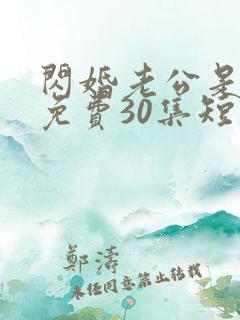 閃婚老公是
免費30集短
鄭濤
未经同意禁止转载